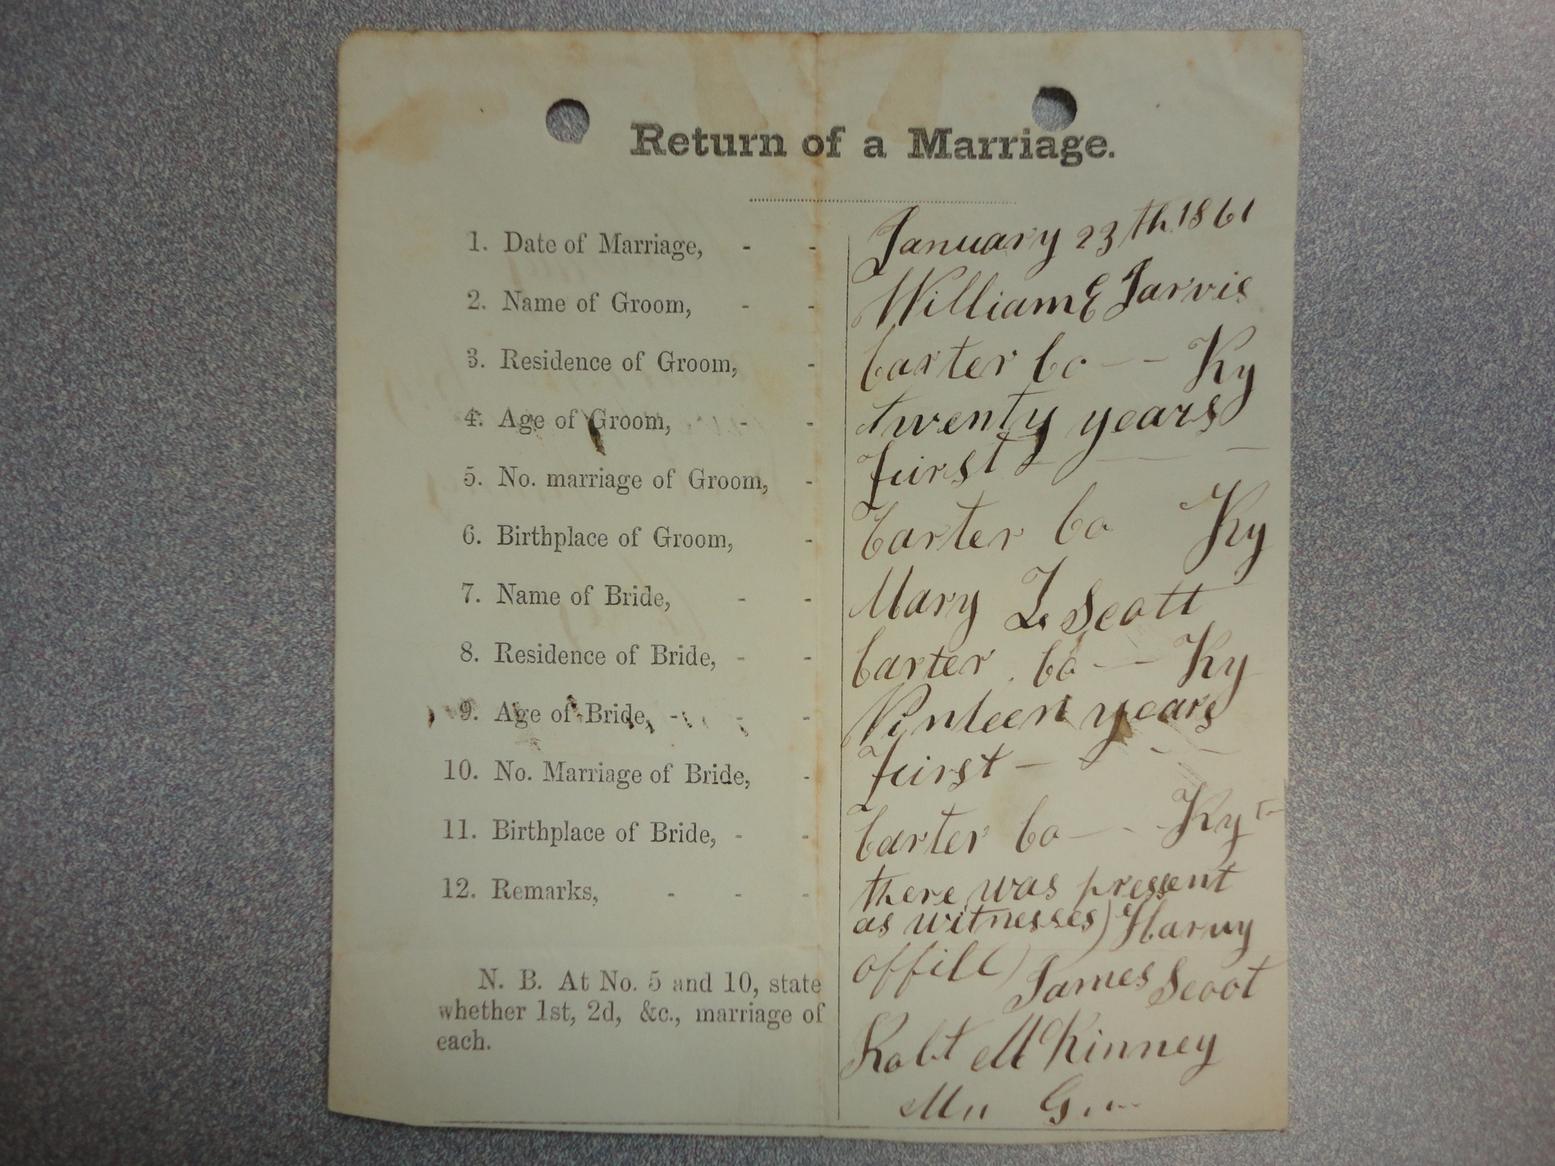 Return of a Marriage.
1. Date of Marriage, - - January 23th 1861
2. Name of Groom, - - William E Jarvis
3. Residence of Groom, - Carter Co — - Ky
4. Age of Groom, - - twenty years
5. No. marriage of Groom, - first - — —
6. Birthplace of Groom, - Carter Co Ky
7. Name of Bride, - - Mary L. Scott
8. Residence of Bride, - - Carter . Co — Ky
9. Age of Bride, - - - Ninteen years
10. No. Marriage of Bride, - first - - —
11. Birthplace of Bride, - - Carter Co — - Ky
12. Remarks, - - - there was pressent
as witnesses) Harvy
offill) James Scoot
N. B. At No. 5 and 10, state
whether 1st, 2d, &c., marriage of
each.
Robt McKinney